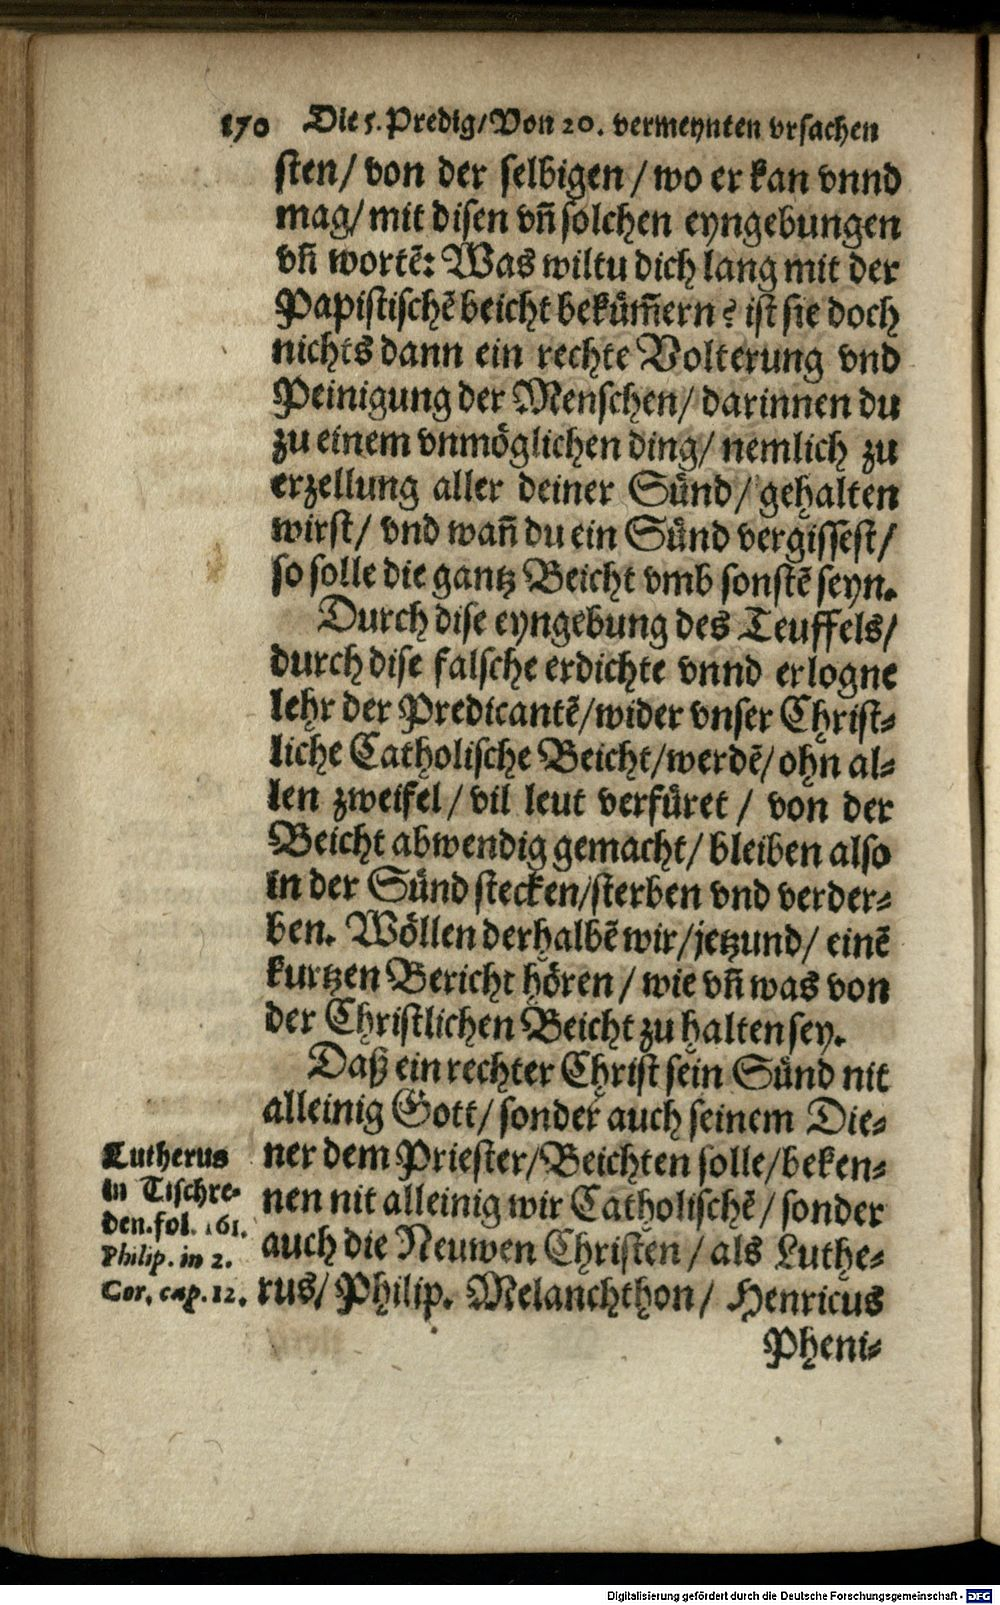 170 Die 5. Predig/Von 20. vermeynten vrsachen
sten/ von der selbigen / wo er kan vnnd
mag/ mit disen vñ solchen eyngebungen
vñ wortẽ: Was wiltu dich lang mit der
Papistischẽ beicht bekům̃ern? ist sie doch
nichts dann ein rechte Volterung vnd
Peinigung der Menschen/ darinnen du
zu einem vnmöglichen ding/ nemlich zu
erzellung aller deiner Sünd/ gehalten
wirst/ vnd wañ du ein Sünd vergissest/
so solle die gantz Beicht vmb sonstẽ seyn.
Durch dise eyngebung des Teuffels/
durch dise falsche erdichte vnnd erlogne
lehr der Predicantẽ/wider vnser Christ⸗
liche Catholische Beicht/werdẽ/ ohn al⸗
len zweifel / vil leut verfüret / von der
Beicht abwendig gemacht/ bleiben also
in der Sünd stecken/sterben vnd verder⸗
ben. Wöllen derhalbẽ wir/jetzund/ einẽ
kurtzen Bericht hören / wie vñ was von
der Christlichen Beicht zu halten sey.
Daß ein rechter Christ sein Sünd nit
alleinig Gott/ sonder auch seinem Die⸗
ner dem Priester/Beichten solle/beken⸗
nen nit alleinig wir Catholischẽ/ sonder
auch die Neuwen Christen / als Luthe⸗
rus/ Philip. Melanchthon/ Henricus
Pheni⸗
Lutherus
in Tischre⸗
den.fol. 161.
Philip. in 2.
Cor. cap. 12.
Digitalisierung gefördert durch die Deutsche Forschungsgemeinschaft - DFG